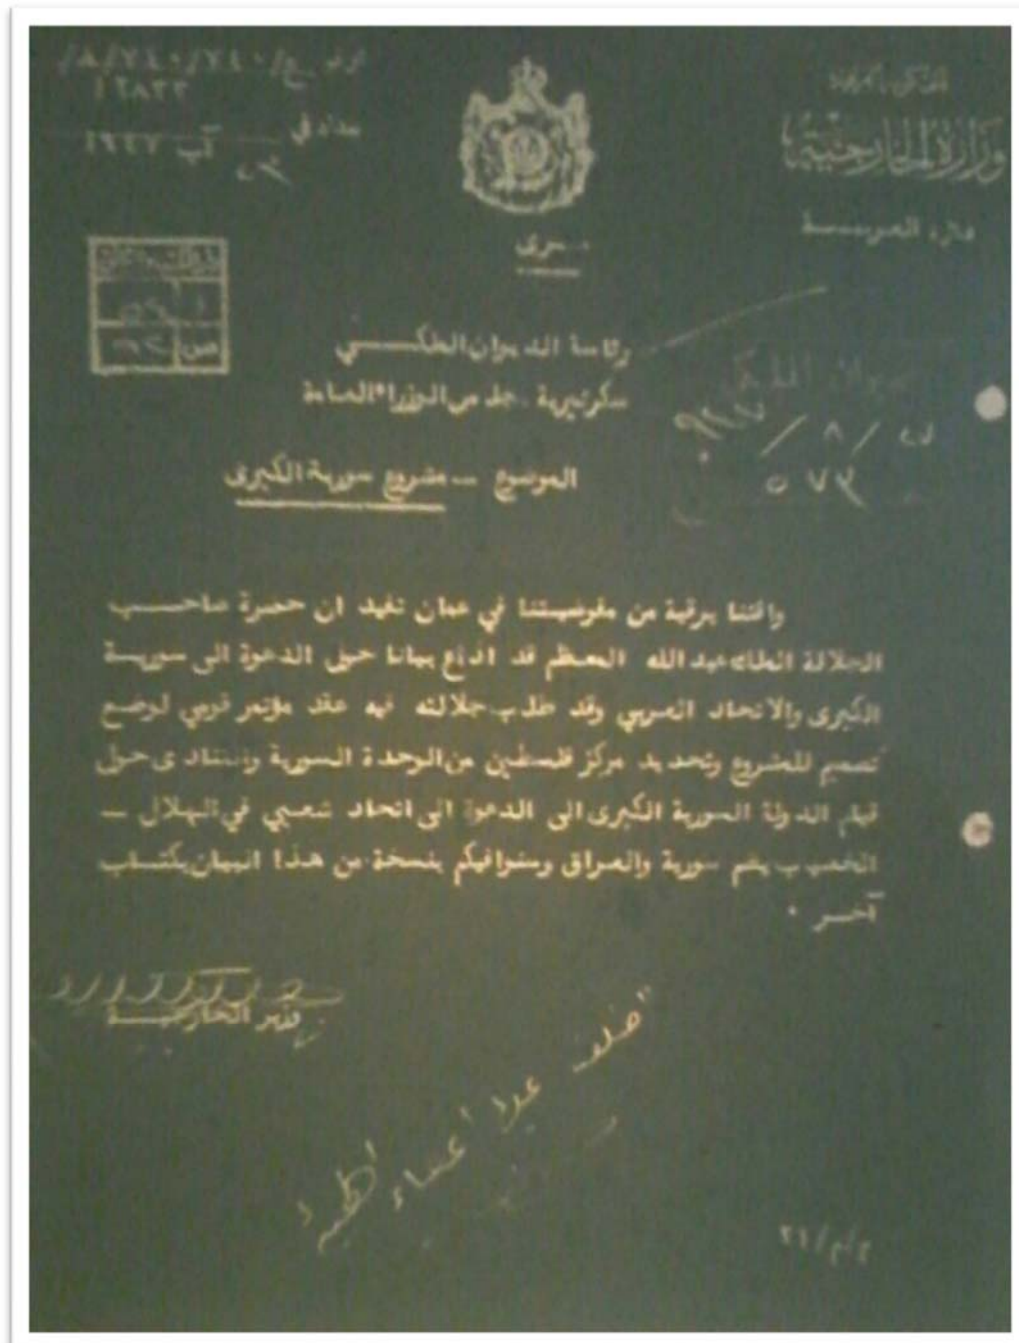 وزارة الخارجية
الدائرة العربية
الرقم ع/٢٤٠/٢٤٠/٨/
١٢٨٢٢
بغداد في
آب ١٩٤٧
سري
رئاسة الديوان الملكي
سكرتيرية مجلس الوزراء العامة
٨ /
٥٧٣
الموضوع – مشروع سورية الكبرى
وافتنا برقية من مفوضيتنا في عمان تفيد ان حضرة صاحب
الجلالة الملك عبد الله المعظم قد اذاع بيانا حول الدعوة الى سورية
الكبرى والاتحاد العربي وقد طلب جلالته فيه عقد مؤتمر قومي لوضع
تصميم للمشروع وتحديد مركز فلسطين من الوحدة السورية وانه نادى حول
قيام الدولة السورية الكبرى الى الدعوة الى اتحاد شعبي في الهلال –
الخصيب يضم سورية والعراق وسنوافيكم بنسخة من هذا البيان بكتاب
آخر .
وزير الخارجية
ع/م/٢١